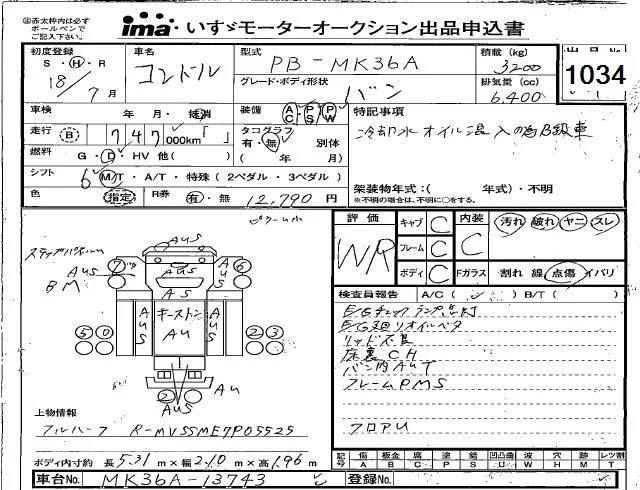 ※赤太枠内は必ず
ボールペンで
ご記入下さい。
ima いすゞモーターオークション出品申込書
初度登録 S・H・R 18/7月
車名 コンドル
型式 PB-MK36A
積載(kg) 3200
出品No. 1034
グレード・ボディ形状 バン
排気量(cc) 6,400
車検 年 月・抹消
装備 AC PS PW
特記事項
走行 B 747,000km「 」
タコグラフ 有・無 別体
( 年 月)
冷却水オイル混入の為B級車
燃料 G・D・HV 他( )
シフト 6 M/T・A/T・特殊(2ペダル・3ペダル)
架装物年式:( 年式)・不明
※不明の場合は、不明に○をする。
色 指定 R券 有・無 12,790円
評価 WR
キャブ C
フレーム C
ボディ C
内装 C
汚れ 破れ ヤニ スレ
Fガラス 割れ 線 点傷 イバリ
検査員報告 A/C( ) B/T( )
E/Gチェックランプ点灯
E/G廻リオイルベタ
リッド不良
床裏CH
バン内AUT
フレームPMS
フロアU
ステップパネルM
AUS
BM
AUS
7
6
AUS
AS
AUS
キーストン
AU
AUS
5 0
2 3
2
AUS
AU
上物情報
フルハーフ R-MVSSME7P05525
ボディ内寸約 長5.31m×幅2.10m×高1.96m
記号 傷A 板金B 腐C 塗P 錆S 凹凸曲U 波W 穴H 跡M レツ割T
車台No. MK36A-13743
登録No.